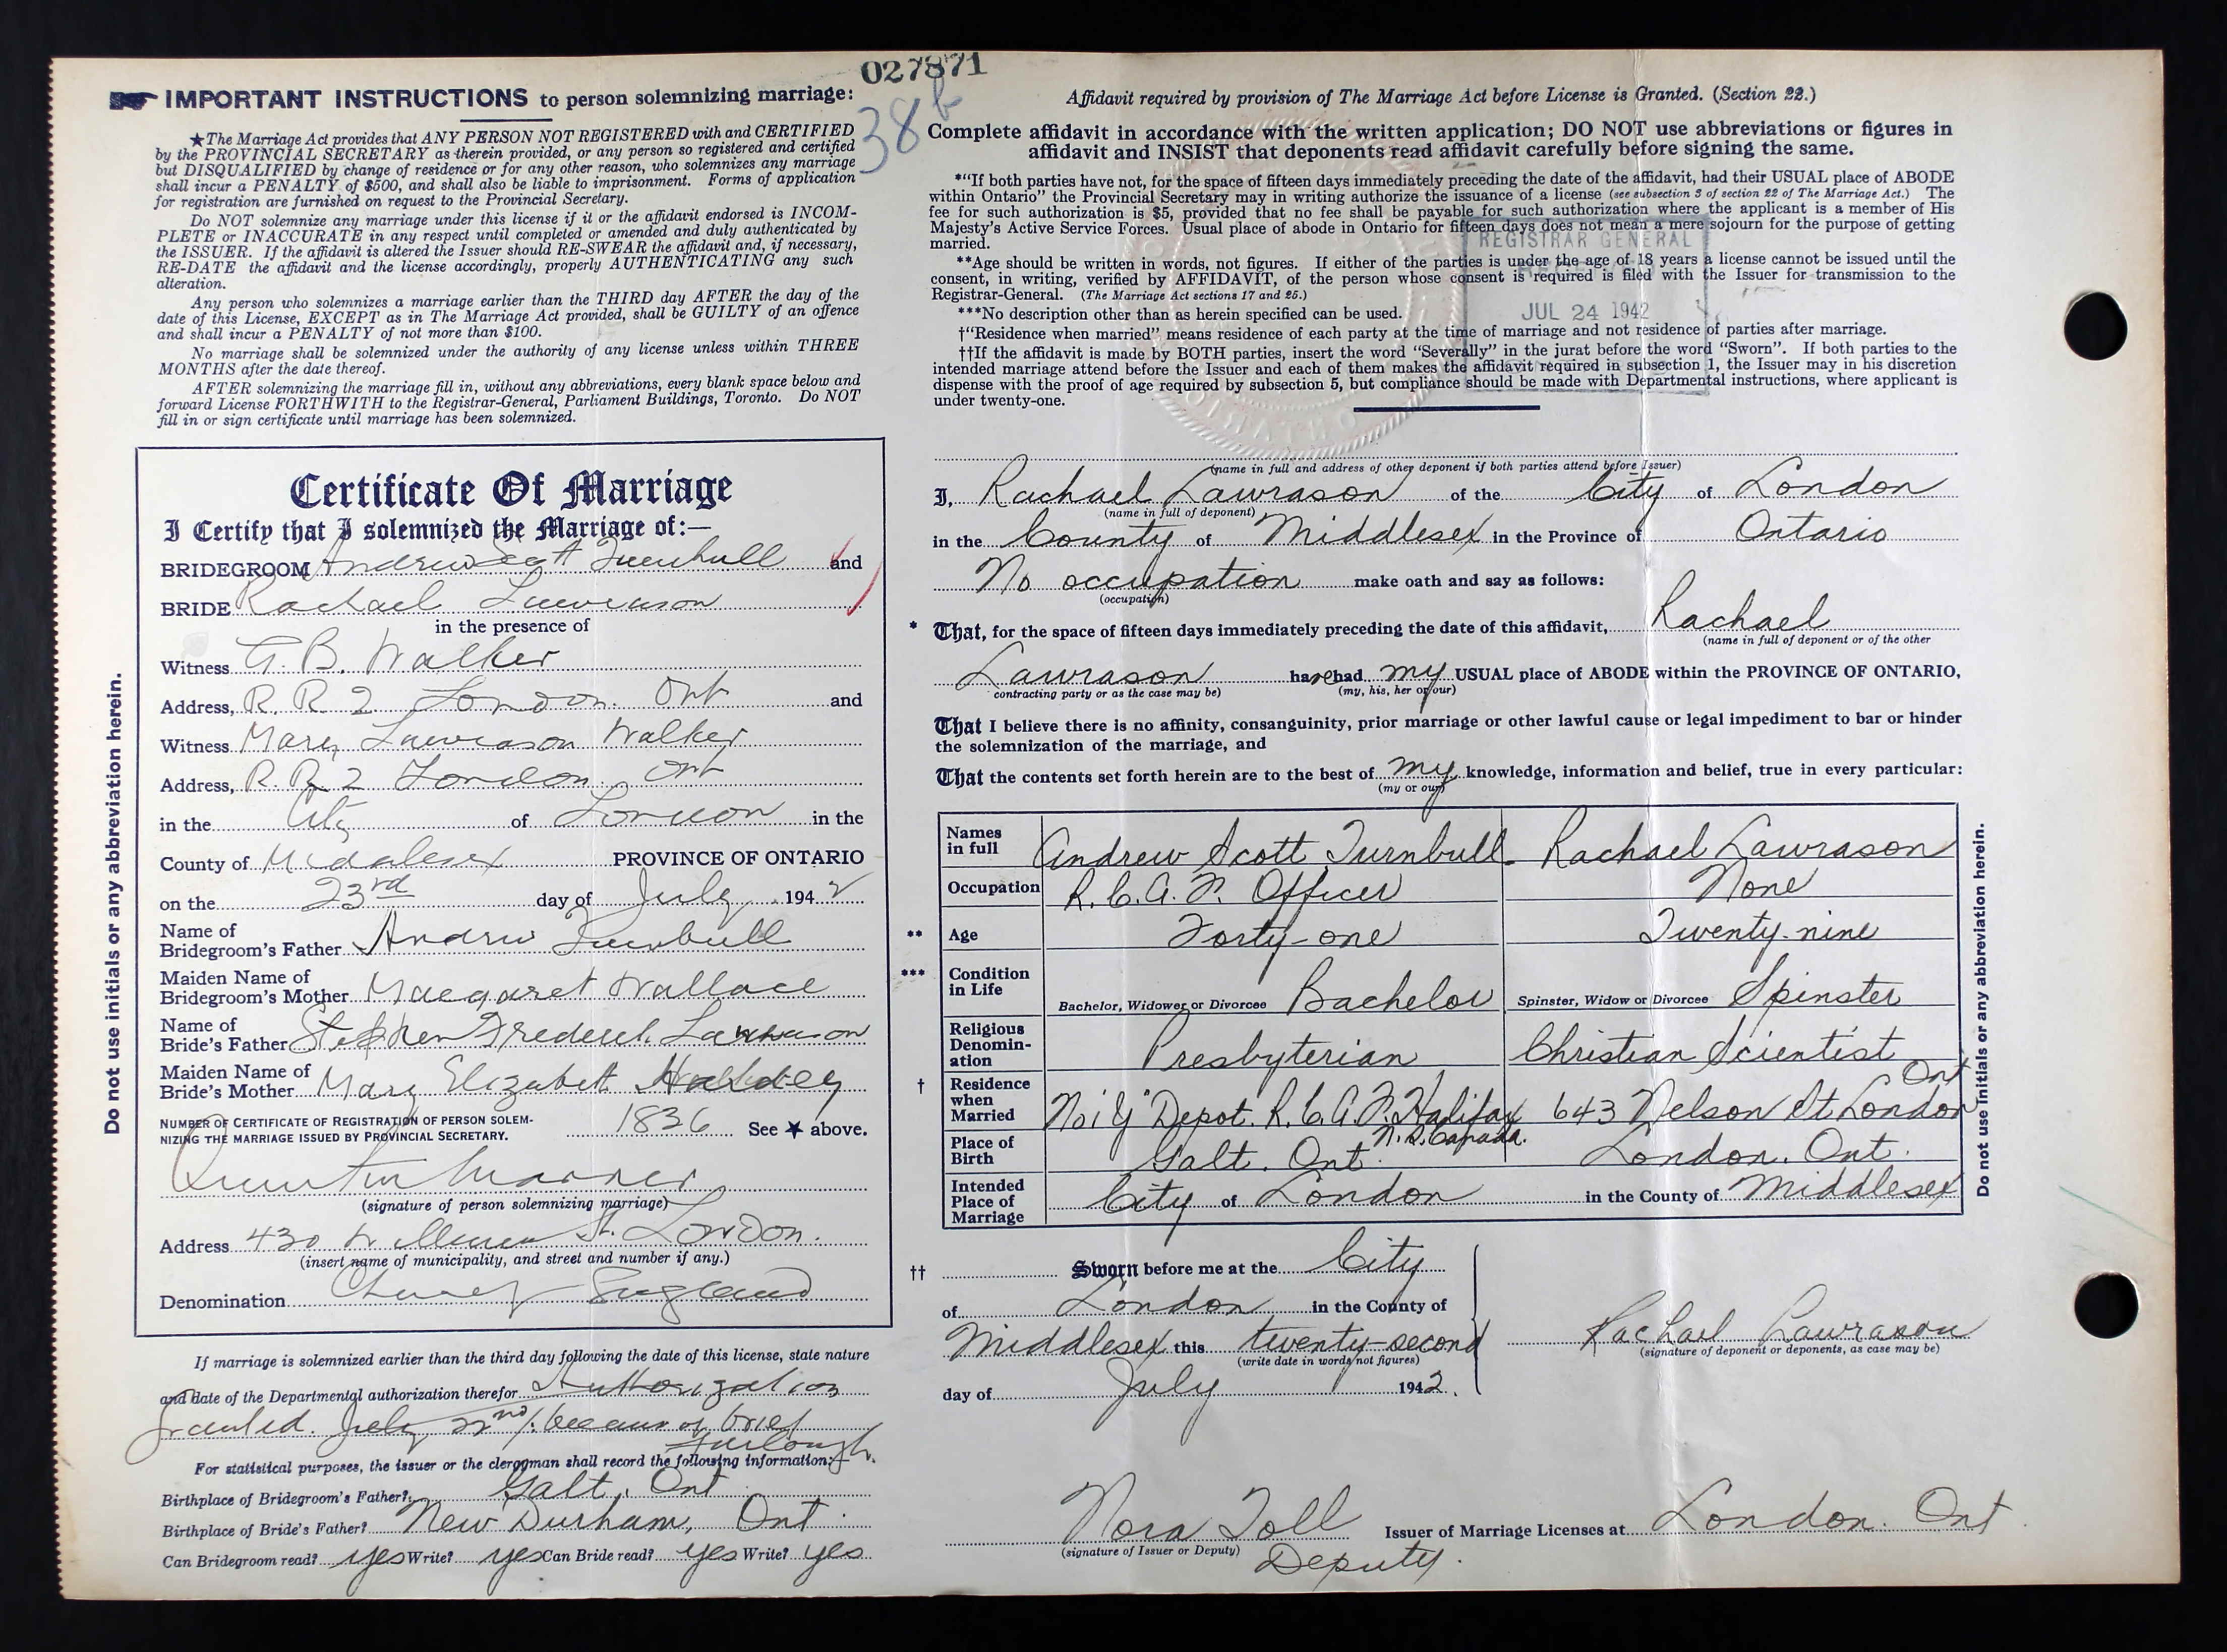 027871
38b
IMPORTANT INSTRUCTIONS to person solemnizing marriage:
★The Marriage Act provides that ANY PERSON NOT REGISTERED with and CERTIFIED
by the PROVINCIAL SECRETARY as therein provided, or any person so registered and certified
but DISQUALIFIED by change of residence or for any other reason, who solemnizes any marriage
shall incur a PENALTY of $500, and shall also be liable to imprisonment. Forms of application
for registration are furnished on request to the Provincial Secretary.
Do NOT solemnize any marriage under this license if it or the affidavit endorsed is INCOM-
PLETE or INACCURATE in any respect until completed or amended and duly authenticated by
the ISSUER. If the affidavit is altered the Issuer should RE-SWEAR the affidavit and, if necessary,
RE-DATE the affidavit and the license accordingly, properly AUTHENTICATING any such
alteration.
Any person who solemnizes a marriage earlier than the THIRD day AFTER the day of the
date of this License, EXCEPT as in The Marriage Act provided, shall be GUILTY of an offence
and shall incur a PENALTY of not more than $100.
No marriage shall be solemnized under the authority of any license unless within THREE
MONTHS after the date thereof.
AFTER solemnizing the marriage fill in, without any abbreviations, every blank space below and
forward License FORTHWITH to the Registrar-General, Parliament Buildings, Toronto. Do NOT
fill in or sign certificate until marriage has been solemnized.
Do not use initials or any abbreviation herein.
Certificate Of Marriage
I Certify that I solemnized the Marriage of:—
BRIDEGROOM Andrew Scott Turnbull and
BRIDE Rachael Lawrason
in the presence of
Witness G. B. Walker
Address, R. R. 2 London. Ont and
Witness Mary Lawrason Walker
Address, R. R. 2 London. Ont
in the City of London in the
County of Middlesex PROVINCE OF ONTARIO
on the 23rd day of July 1942
Name of
Bridegroom's Father Andrew Turnbull
Maiden Name of
Bridegroom's Mother Margaret Wallace
Name of
Bride's Father Stephen Frederick Lawrason
Maiden Name of
Bride's Mother Mary Elizabeth
NUMBER OF CERTIFICATE OF REGISTRATION OF PERSON SOLEM-
NIZING THE MARRIAGE ISSUED BY PROVINCIAL SECRETARY. 1836 See ★ above.
Quintin Warner
(signature of person solemnizing marriage)
Address 430 William St. London.
(insert name of municipality, and street and number if any.)
Denomination Church England
If marriage is solemnized earlier than the third day following the date of this license, state nature
and date of the Departmental authorization therefor Authorization
granted. July 22nd/. because of brief
furlough.
For statistical purposes, the issuer or the clergyman shall record the following information:
Birthplace of Bridegroom's Father? Galt, Ont
Birthplace of Bride's Father? New Durham, Ont.
Can Bridegroom read? yes Write? yes Can Bride read? yes Write? yes
Affidavit required by provision of The Marriage Act before License is Granted. (Section 22.)
Complete affidavit in accordance with the written application; DO NOT use abbreviations or figures in
affidavit and INSIST that deponents read affidavit carefully before signing the same.
*"If both parties have not, for the space of fifteen days immediately preceding the date of the affidavit, had their USUAL place of ABODE
within Ontario" the Provincial Secretary may in writing authorize the issuance of a license (see subsection 3 of section 22 of The Marriage Act.) The
fee for such authorization is $5, provided that no fee shall be payable for such authorization where the applicant is a member of His
Majesty's Active Service Forces. Usual place of abode in Ontario for fifteen days does not mean a mere sojourn for the purpose of getting
married.
REGISTRAR GENERAL
RECEIVED
JUL 24 1942
**Age should be written in words, not figures. If either of the parties is under the age of 18 years a license cannot be issued until the
consent, in writing, verified by AFFIDAVIT, of the person whose consent is required is filed with the Issuer for transmission to the
Registrar-General. (The Marriage Act sections 17 and 25.)
***No description other than as herein specified can be used.
†"Residence when married" means residence of each party at the time of marriage and not residence of parties after marriage.
††If the affidavit is made by BOTH parties, insert the word "Severally" in the jurat before the word "Sworn". If both parties to the
intended marriage attend before the Issuer and each of them makes the affidavit required in subsection 1, the Issuer may in his discretion
dispense with the proof of age required by subsection 5, but compliance should be made with Departmental instructions, where applicant is
under twenty-one.
(name in full and address of other deponent if both parties attend before Issuer)
I, Rachael Lawrason of the City of London
(name in full of deponent)
in the County of Middlesex in the Province of Ontario
No occupation make oath and say as follows:
(occupation)
* That, for the space of fifteen days immediately preceding the date of this affidavit, Rachael
(name in full of deponent or of the other
Lawrason have had my USUAL place of ABODE within the PROVINCE OF ONTARIO,
contracting party or as the case may be) (my, his, her or our)
That I believe there is no affinity, consanguinity, prior marriage or other lawful cause or legal impediment to bar or hinder
the solemnization of the marriage, and
That the contents set forth herein are to the best of my knowledge, information and belief, true in every particular:
(my or our)
Names
in full Andrew Scott Turnbull Rachael Lawrason
Occupation R. C. A. F. Officer None
** Age Forty-one Twenty-nine
*** Condition
in Life Bachelor, Widower or Divorcee Bachelor Spinster, Widow or Divorcee Spinster
Religious
Denomin-
ation Presbyterian Christian Scientist
† Residence
when
Married No 1 "Y" Depot. R. C. A. F. Halifax N. S. Canada. 643 Nelson St London Ont
Place of
Birth Galt. Ont. London. Ont.
Intended
Place of
Marriage City of London in the County of Middlesex
Do not use initials or any abbreviation herein.
†† Sworn before me at the City
of London in the County of
Middlesex this twenty-second
(write date in words not figures)
day of July 1942.
Rachael Lawrason
(signature of deponent or deponents, as case may be)
Nora Toll Issuer of Marriage Licenses at London. Ont
(signature of Issuer or Deputy)
Deputy.